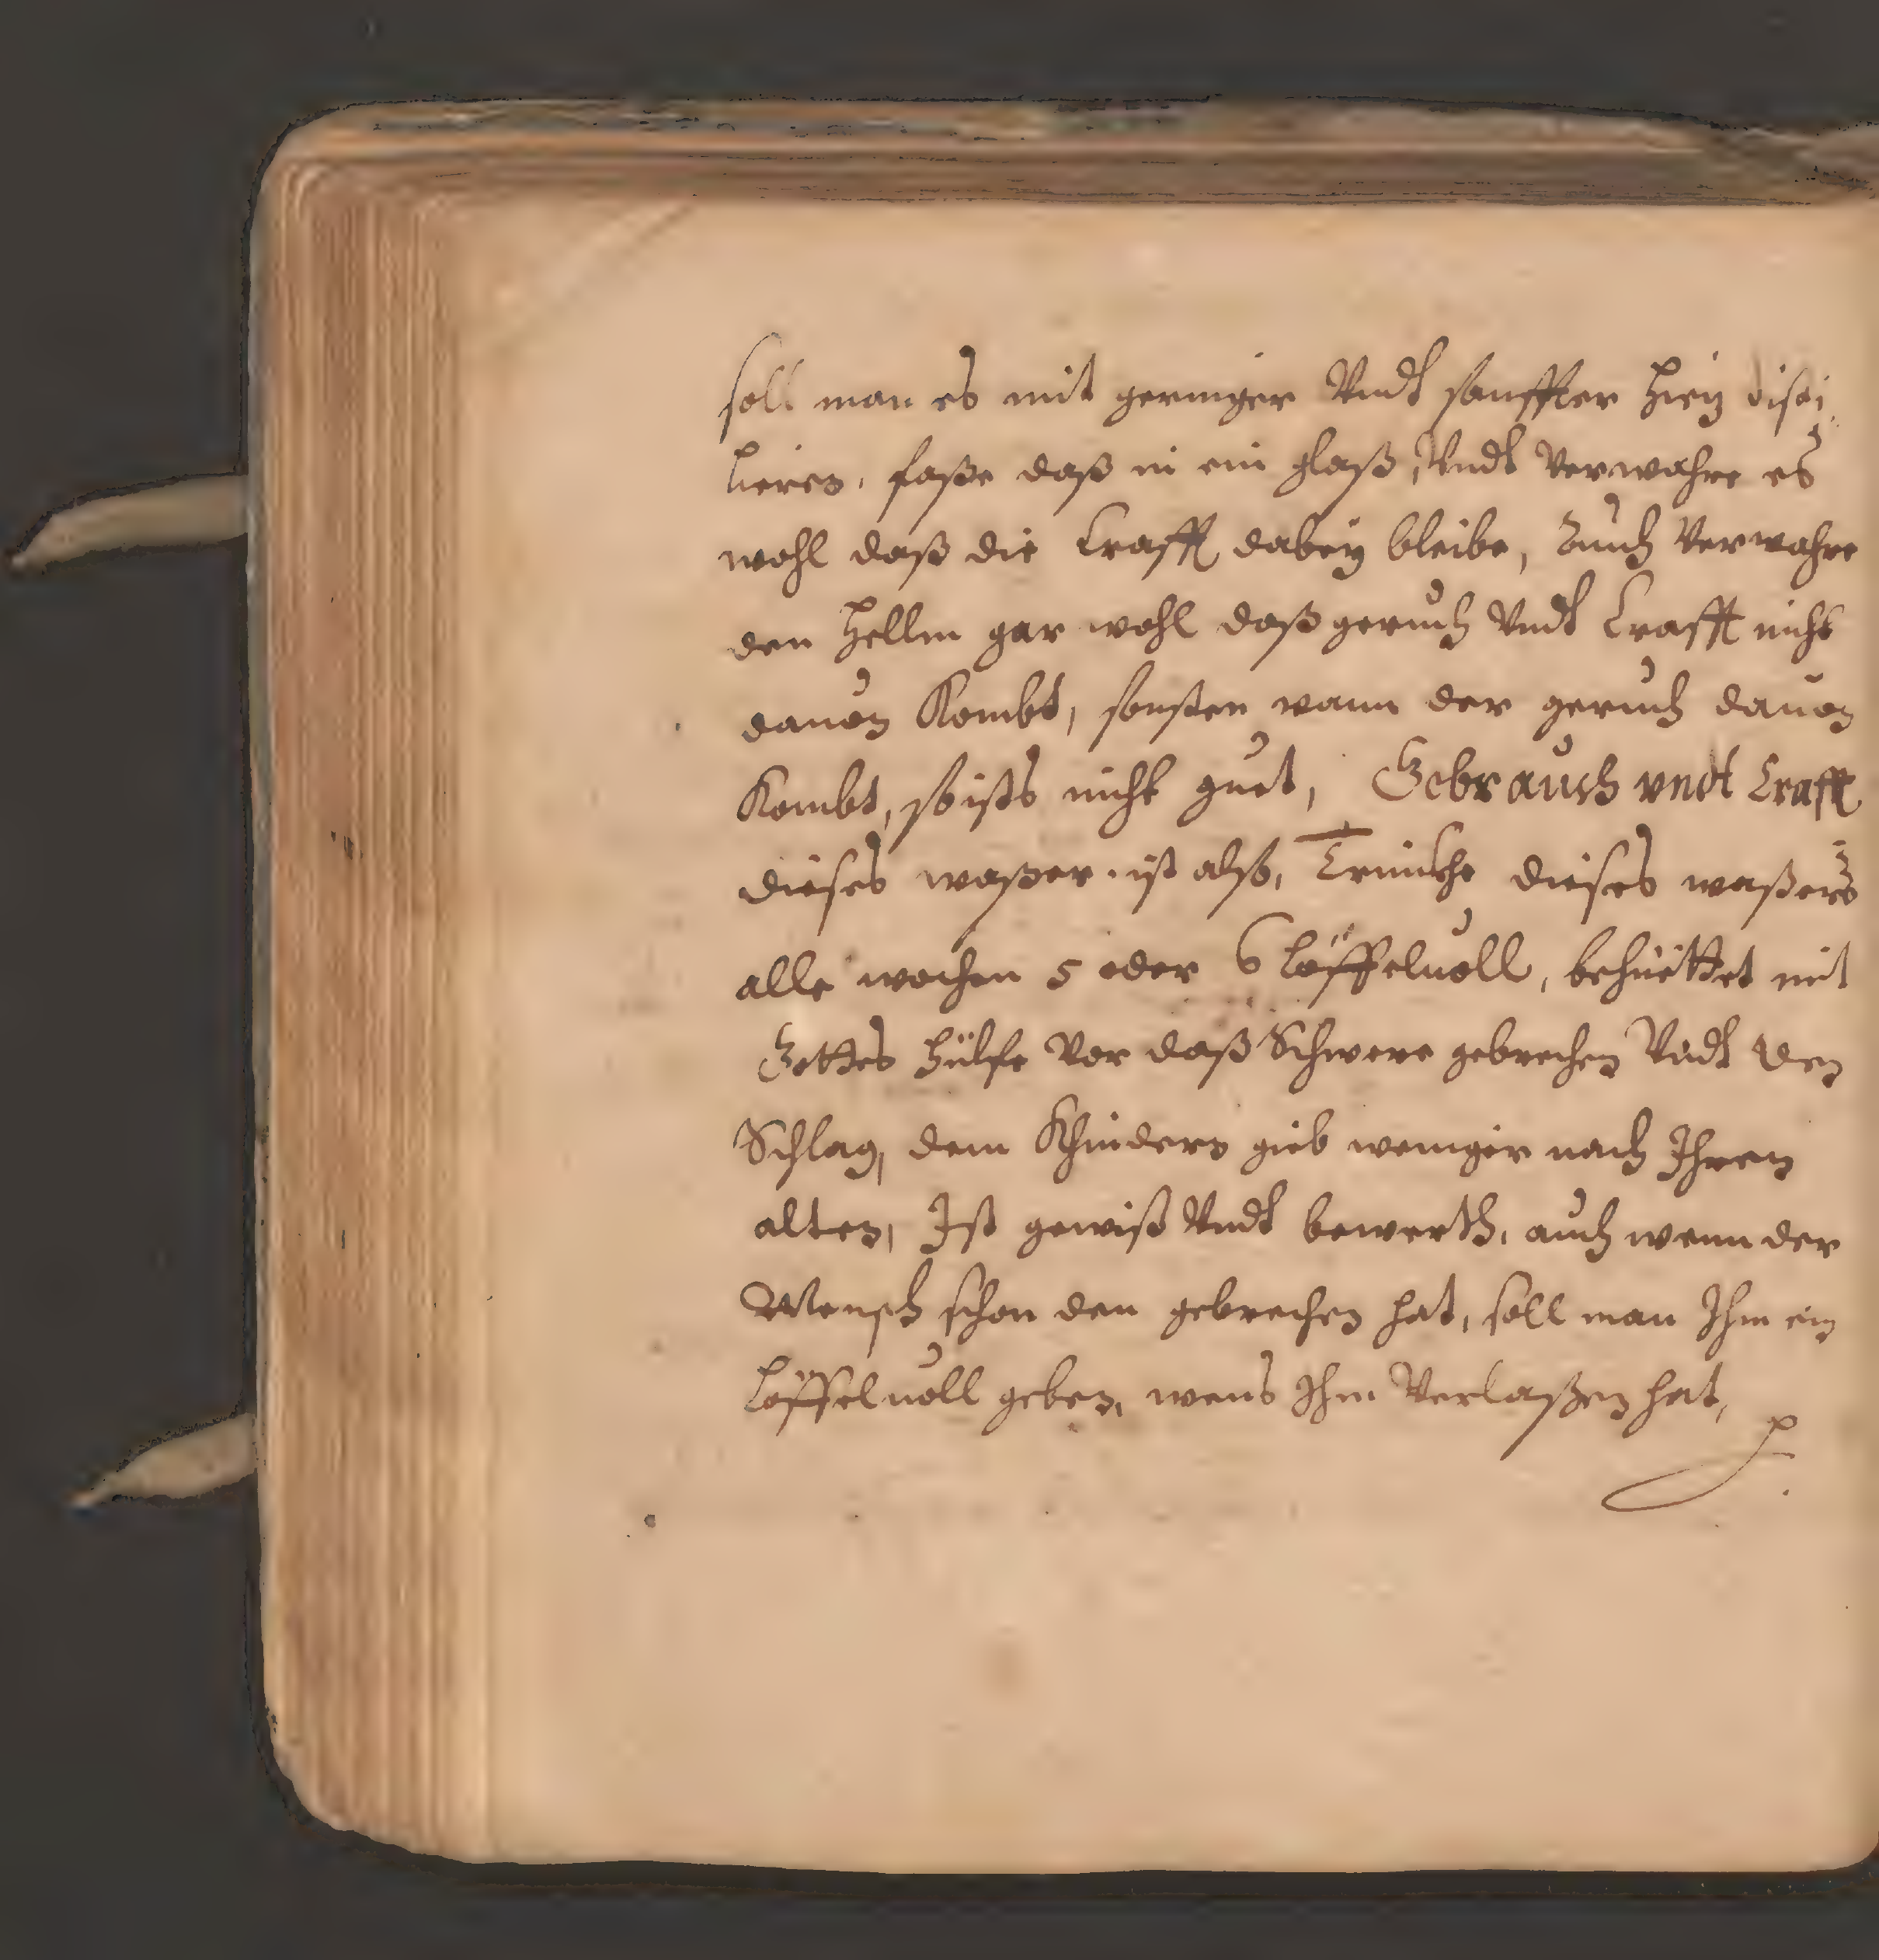 soll man es mit geringer Vndt sanffter Hitz disti
lieren, faße daß in ein glaß, Vndt Verwahre es
wohl daß die Crafft dabey bleibe, Auch Verwahre
den Hellm gar wohl daß geruch Vndt Crafft nicht
dauon Kombt, sonsten wann der geruch dauon
Kombt, so ists nicht guet, Gebrauch vndt Crafft
dieses waßer ist also, Trinckhe dieses waßers
alle wochen 5 oder 6 löffeluoll, behüettet mit
Gottes Hülfe Vor daß Schwere gebrechen Vndt den
Schlag, dem Khindern gieb weniger nach Ihren
alten, Ist gewiß Vndt bewerth, auch wenn der
Mensch schon den gebrechen hat, soll man Ihm ein
Löffeluoll geben, wens Ihm Verlaßen hat,